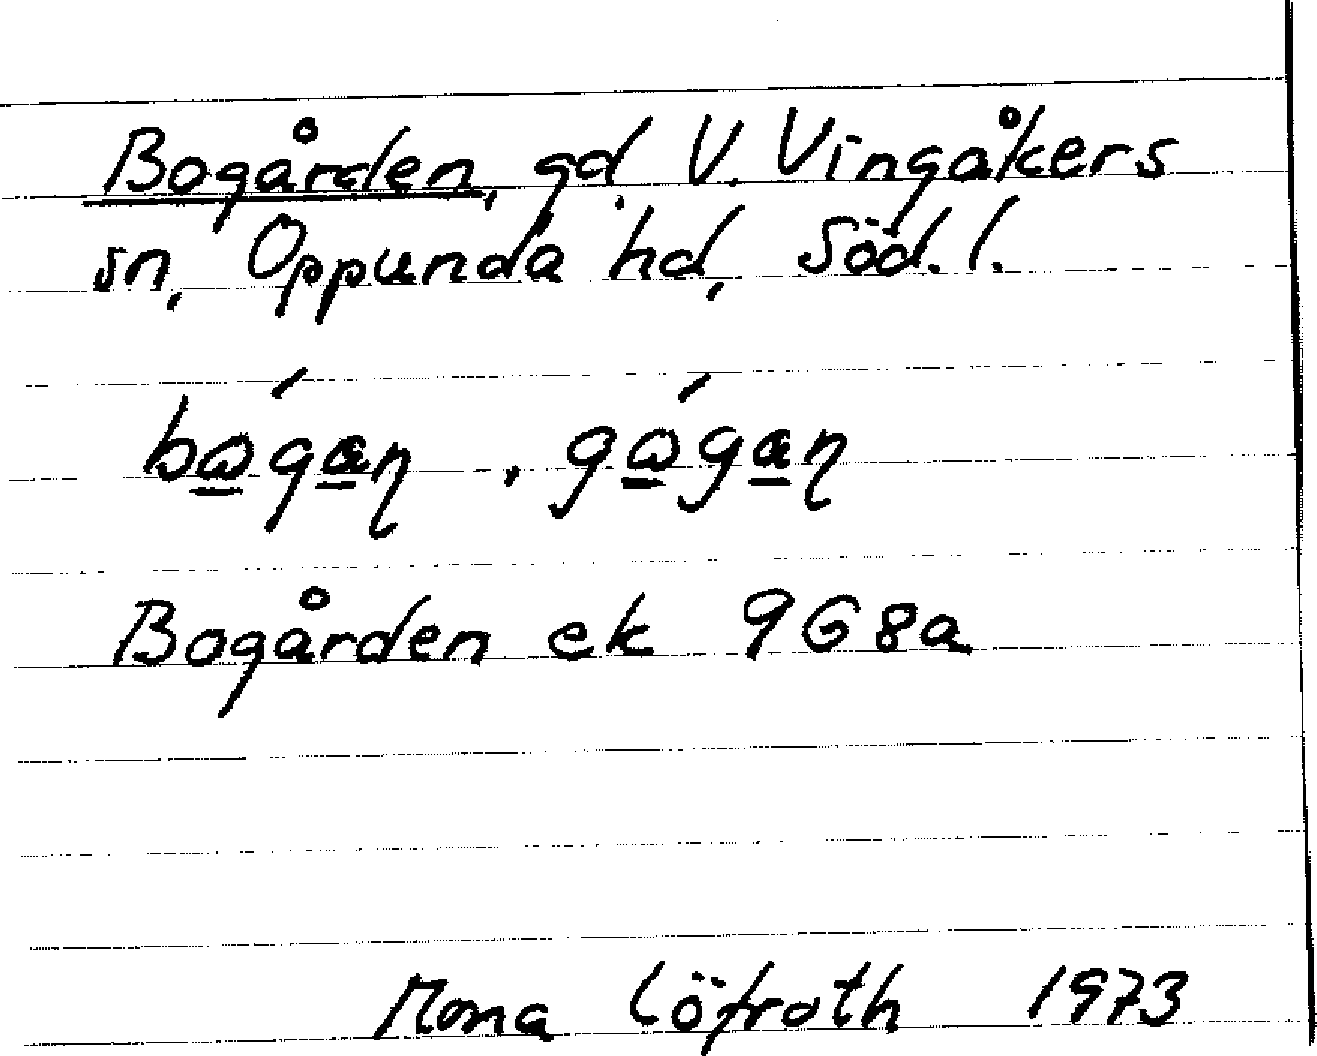 Bogården, gd, V. Vingåkers
sn, Oppunda hd, Söd. l.
Bogården ek 9G8a
Mona Löfroth 1973